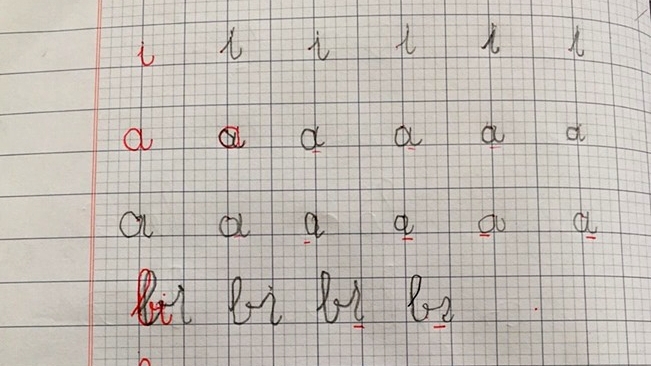 i i i i i i
a a a a a a
a a a a a a
bi bi